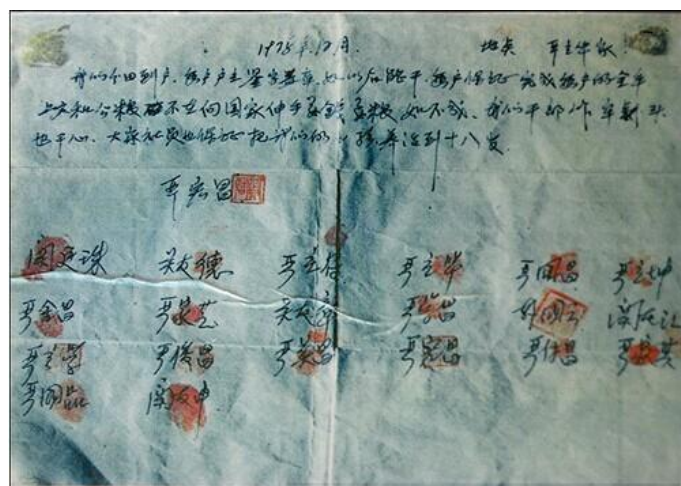 1978年12月. 地点 严立华家
我们分田到户,每户户主签字盖章,如以后能干,每户保证完成每户的全年
上交和公粮 不在向国家伸手要钱要粮,如不成,我们干部作牢刹头
也干心,大家社员也保证把我们的小孩养活到十八岁.
严宏昌
关廷珠 关友德 严立付 严立华 严国昌 严立坤
严金昌 严家芝 关友章 严学昌 韩国云 关友江
严立学 严俊昌 严美昌 严付昌
严国品 关友申